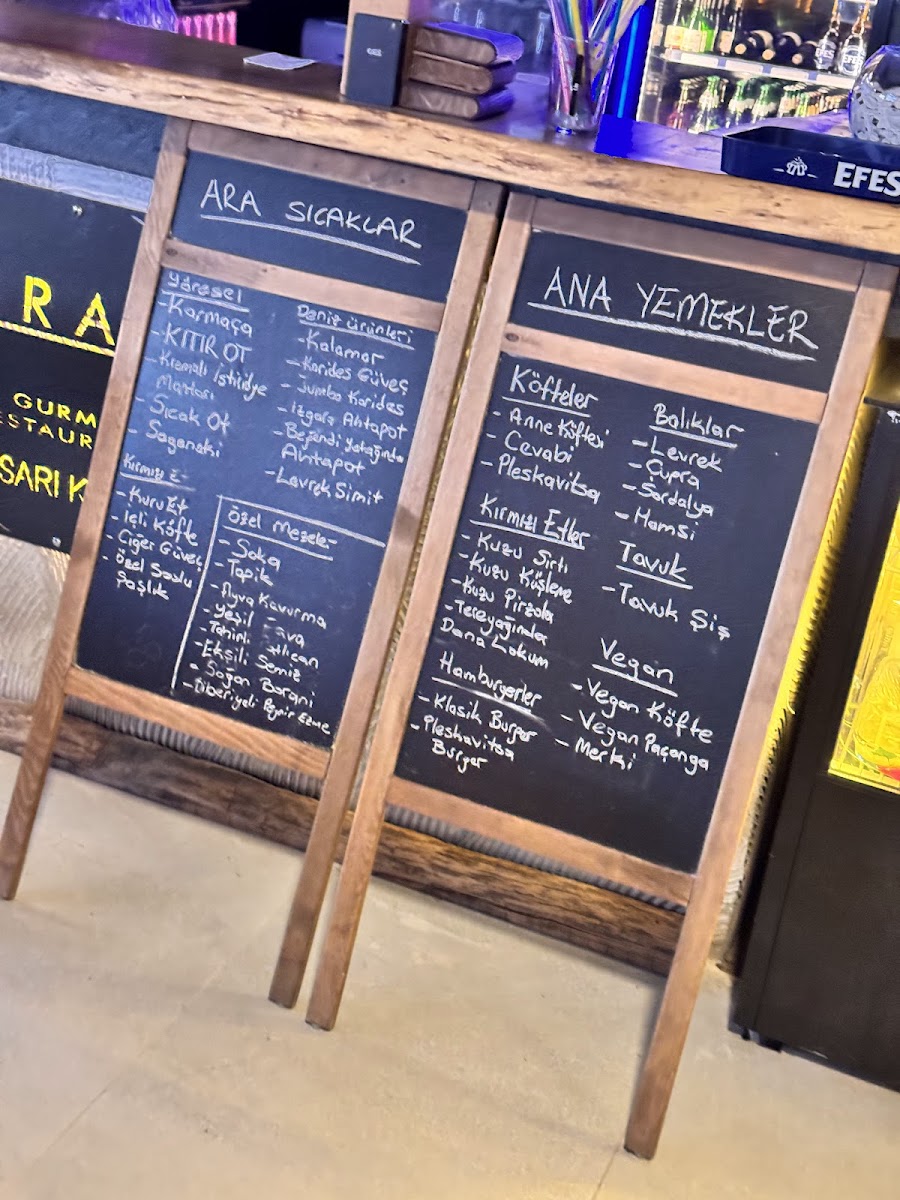 EFES
RA
GURM
ESTAUR
SARI K
ARA SICAKLAR
Yöresel
- Karmaça
- KITIR OT
- Kremalı İstiridye
Mantarı
- Sıcak Ot
- Saganaki
Deniz ürünleri
- Kalamar
- Karides Güveç
- Jumbo Karides
- Izgara Ahtapot
- Beğendi Yatağında
Ahtapot
- Levrek Simit
Kırmızı E
- Kuru Et
- İçli Köfte
- Ciğer Güveç
- Özel Soslu
Paşlık
Özel Mezeler
- Saka
- Topik
- Ayva Kavurma
- Yeşil Fava
- Tahinli
- Ekşili Semiz
- Soğan Borani
- Biberiyeli Peynir Ezme
ANA YEMEKLER
Köfteler
- Anne Köftesi
- Cevabi
- Pleskavitsa
Kırmızı Etler
- Kuzu Sırtı
- Kuzu Küşleme
- Kuzu Pirzola
- Tereyağında
Dana Lokum
Hamburgerler
- Klasik Burger
- Pleskavitsa
Burger
Balıklar
- Levrek
- Çupra
- Sardalya
- Hamsi
Tavuk
- Tavuk Şiş
Vegan
- Vegan Köfte
- Vegan Paçanga
- Merki